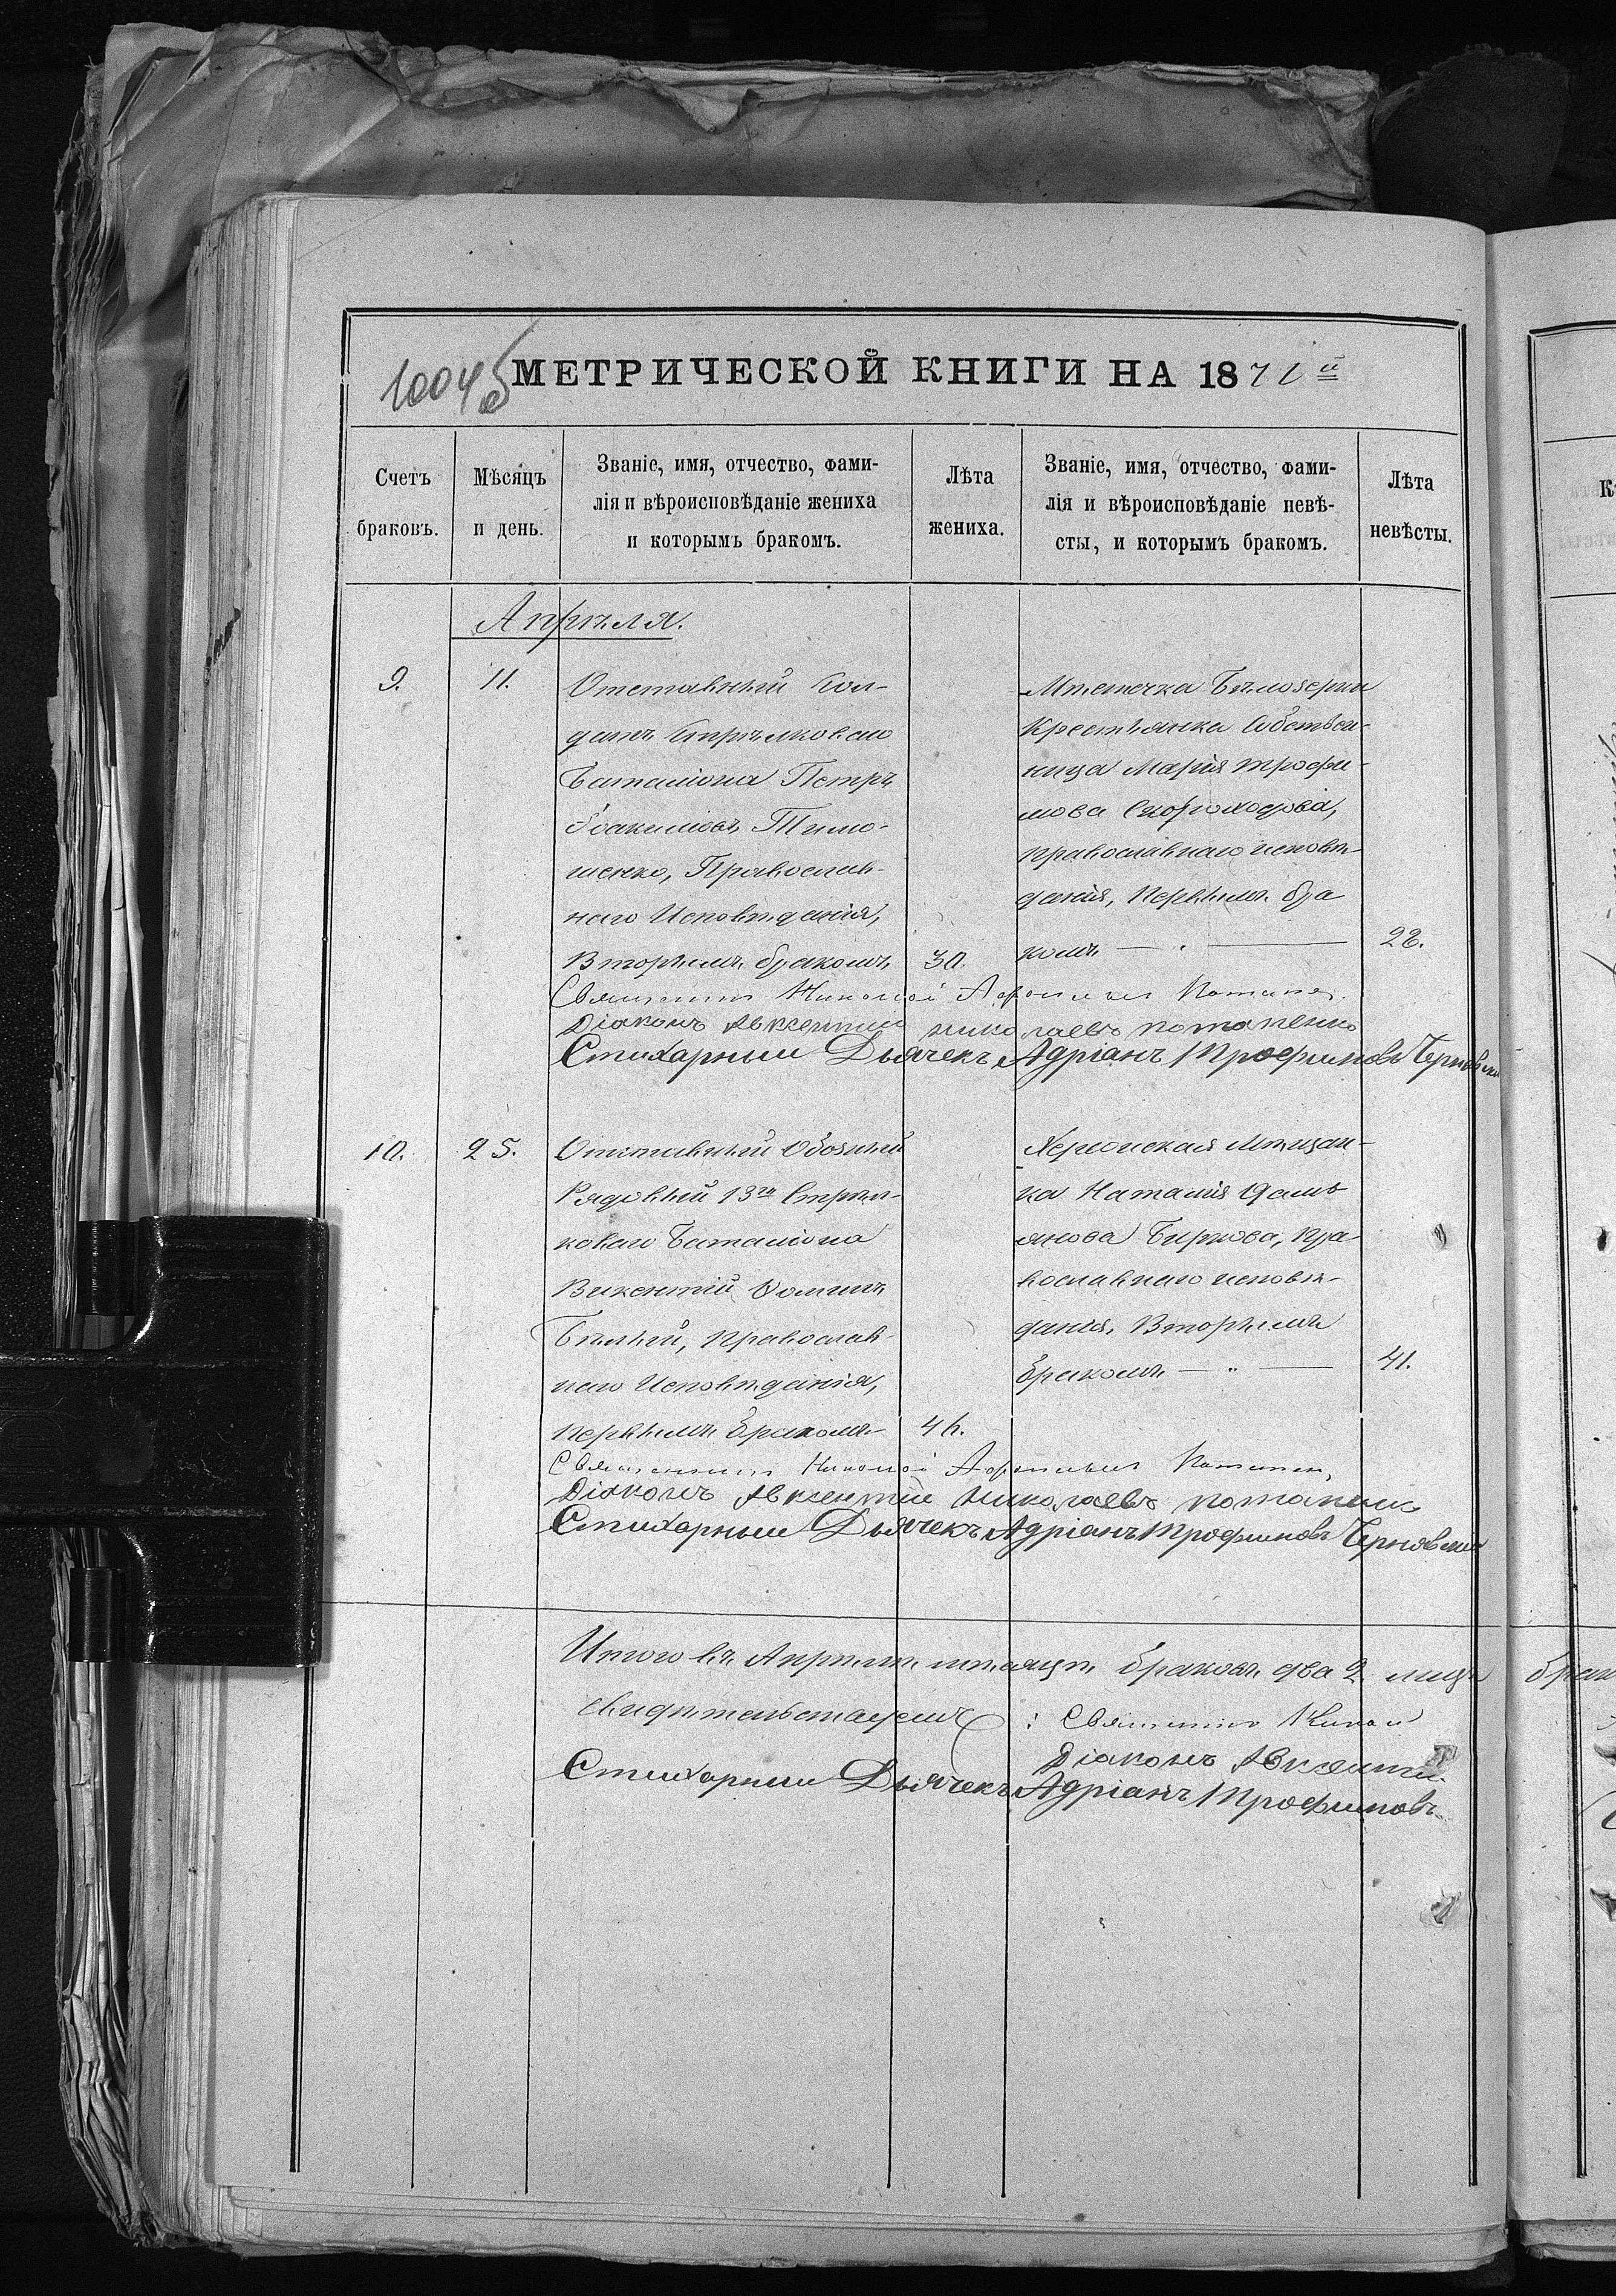 1004 б МЕТРИЧЕСКОЙ КНИГИ НА 1871й
Счетъ браковъ.
Мѣсяцъ и день.
Званіе, имя, отчество, фами-
лія и вѣроисповѣданіе жениха
и которымъ бракомъ.
Лѣта жениха.
Званіе, имя, отчество, фами-
лія и вѣроисповѣданіе невѣ-
сты, и которымъ бракомъ.
Лѣта невѣсты.
Апрѣля.
9.
11.
Отставный Сол-
датъ Стрѣлковаго
Баталіона Петръ
Іоакимовъ Тимо-
шенко, Православ-
наго Исповѣданія,
Вторымъ бракомъ
30.
Мѣстечка Бѣлозерки
Крестьянка Собствен-
ница Марія Трофи-
мова Скороходова,
православнаго исповѣ-
данія, Первымъ бра
комъ
22.
Священникъ Николай
Діаконъ Авксентій Николаевъ Потапенко
Стихарный Дьячекъ Адріанъ Трофимовъ Черновскій
10.
25.
Отставный Обозный
Рядовый 13го Стрѣл-
коваго Баталіона
Викентій Фоминъ
Бѣлый, Православ-
наго Исповѣданія,
Первымъ бракомъ
46.
Херсонская Мѣщан-
ка Наталія Дамь
янова Биркова, Пра
вославнаго исповѣ-
данія, Вторымъ
бракомъ
41.
Священникъ Николай
Діаконъ Авксентій Николаевъ Потапенко
Стихарный Дьячекъ Адріанъ Трофимовъ Черновскій
Итого въ Апрѣлѣ мѣсяцѣ браковъ два 2.
свидѣтельствуемъ: Священникъ Никол
Діаконъ Авксентій
Стихарный Дьячекъ Адріанъ Трофимовъ